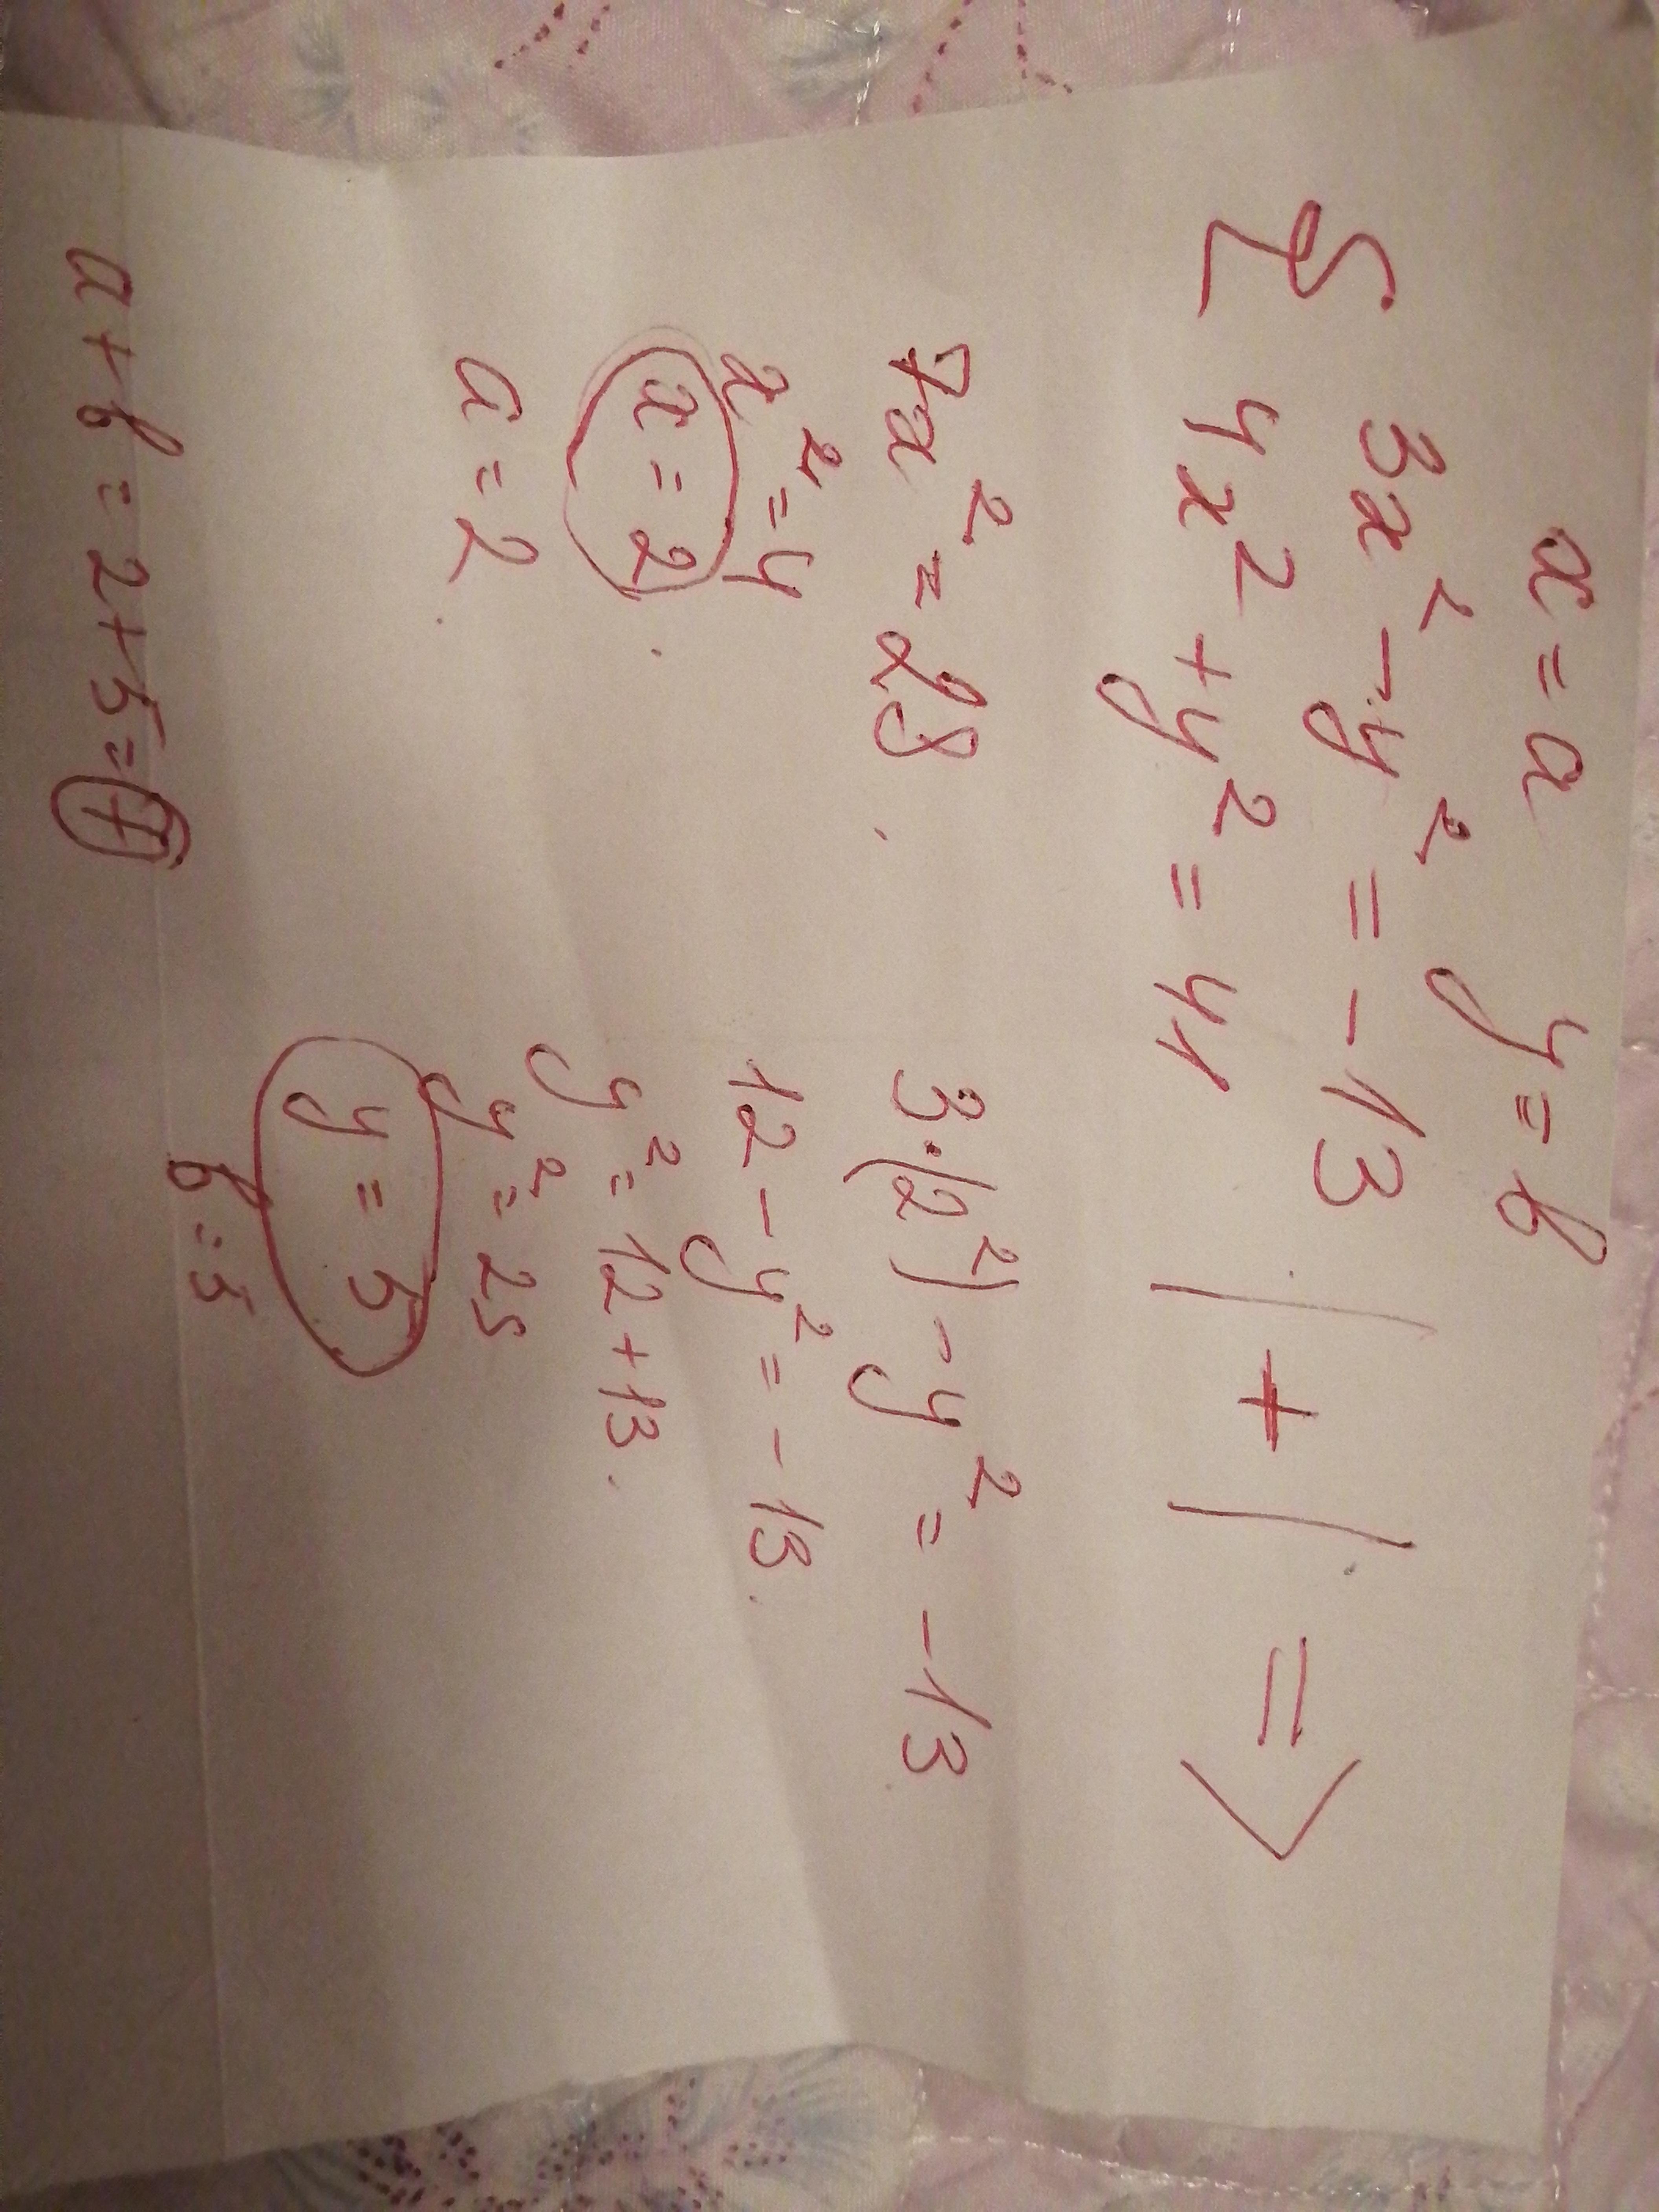 x = a y = b
{ 3x² - y² = -13
4x² + y² = 41 | + | ⇒
7x² = 28
x² = 4
x = 2
a = 2
3·(2²) - y² = -13
12 - y² = -13.
y² = 12 + 13.
y² = 25
y = 5
b = 5
a + b = 2 + 5 = 7